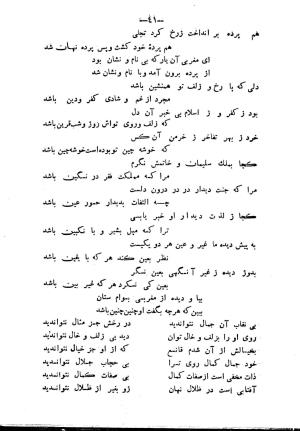 -٤١-
هم پرده بر انداخت زرخ کرد تجلی
هم پردهٔ خود کشت و پس پرده نهان شد
ای مغربی آن یار که بی نام و نشان بود
از پرده برون آمد و با نام و نشان شد
دلی که با رخ و زلف تو همنشین باشد
مجرد از غم و شادی کفر و دین باشد
بود ز کفر و ز اسلام بی خبر آن دل
که زلف و روی تواش روز و شب قرین باشد
خود ز بهر تفاخر ز خرمن آن کس
که خوشه چین تو بوده است خوشه چین باشد
کجا بملك سلیمان و خاتمش نگرم
مرا که مملکت فقر در نگین باشد
مرا که جنت دیدار در درون دلست
چه التفات بدیدار حور عین باشد
کجا ز لذت دیدار او خبر یابی
ترا که میل بشیر و با نگبین باشد
به پیش دیده ما غیر و عین هر دو یکیست
نظر بعین کند هر که با یقین باشد
بدوز دیده ز غیر آنگهی بعین نگر
بعین کی نگرد هر که غیر بین باشد
بیا و دیده از مغربی بوام ستان
ببین که هر چه بگفت او چنین چنین باشد
بی نقاب آن جمال نتواندید
در رخش جز مثال نتواندید
روی او را بزلف و خال توان
دید و بی زلف و خال نتواندید
بخیالش از آن شدم قانع
که از او جز خیال نتواندید
روی او بی حجاب
بی حجاب جلال نتواندید
ذات مخفی است از صفات کمال
بی صفات کمال نتواندید
آفتابی است در ظلال نهان
زو بغیر از ظلال نتواندید